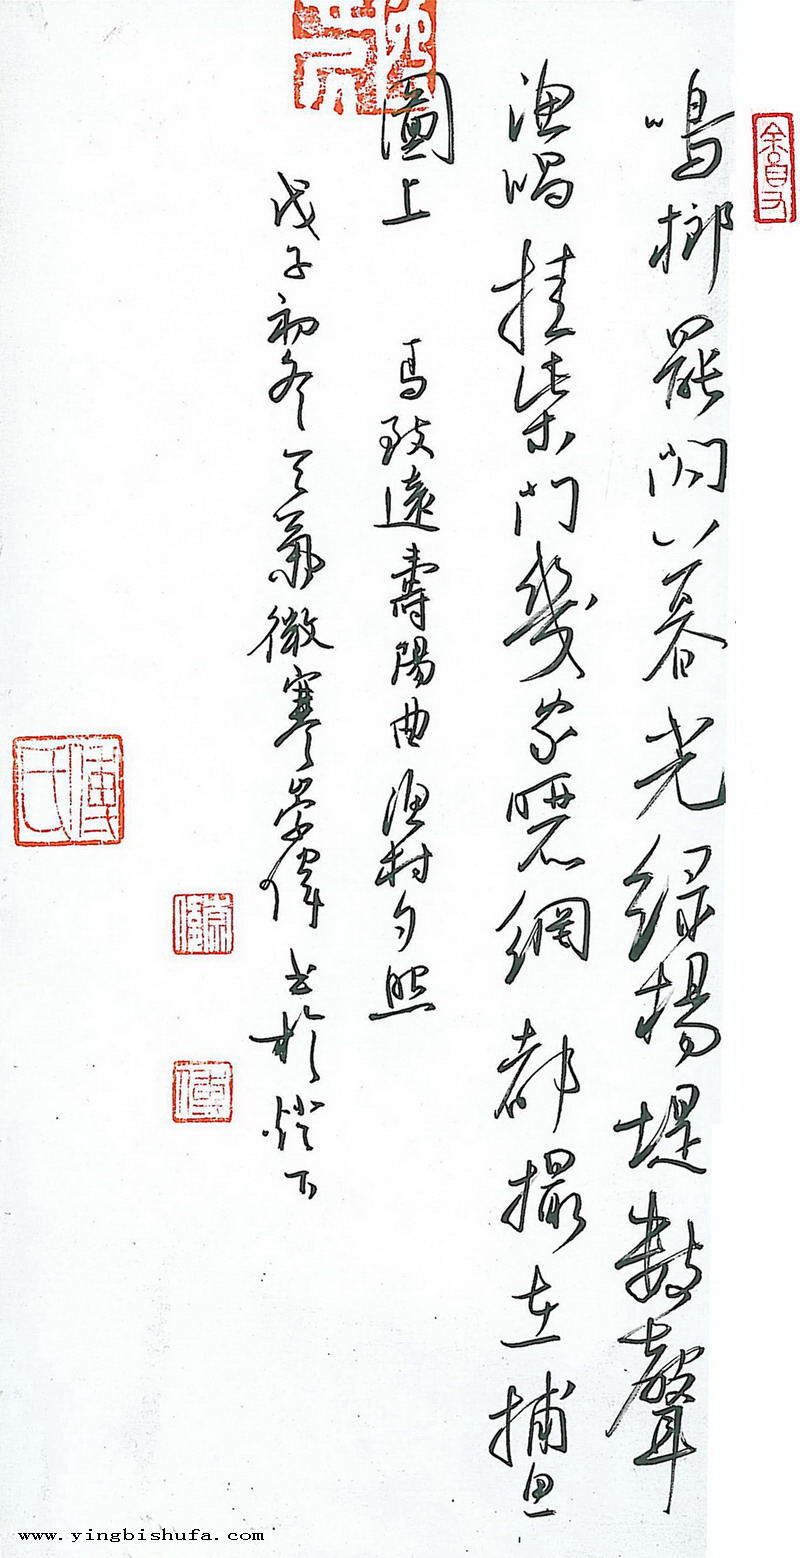 鳴榔罷閃暮光綠楊堤數聲
漁唱掛柴門幾家曬網都撮在捕魚
圖上 馬致遠壽陽曲漁村夕照
戊子初冬天氣微寒崇偉書於燈下
傅氏
www.yingbishufa.com